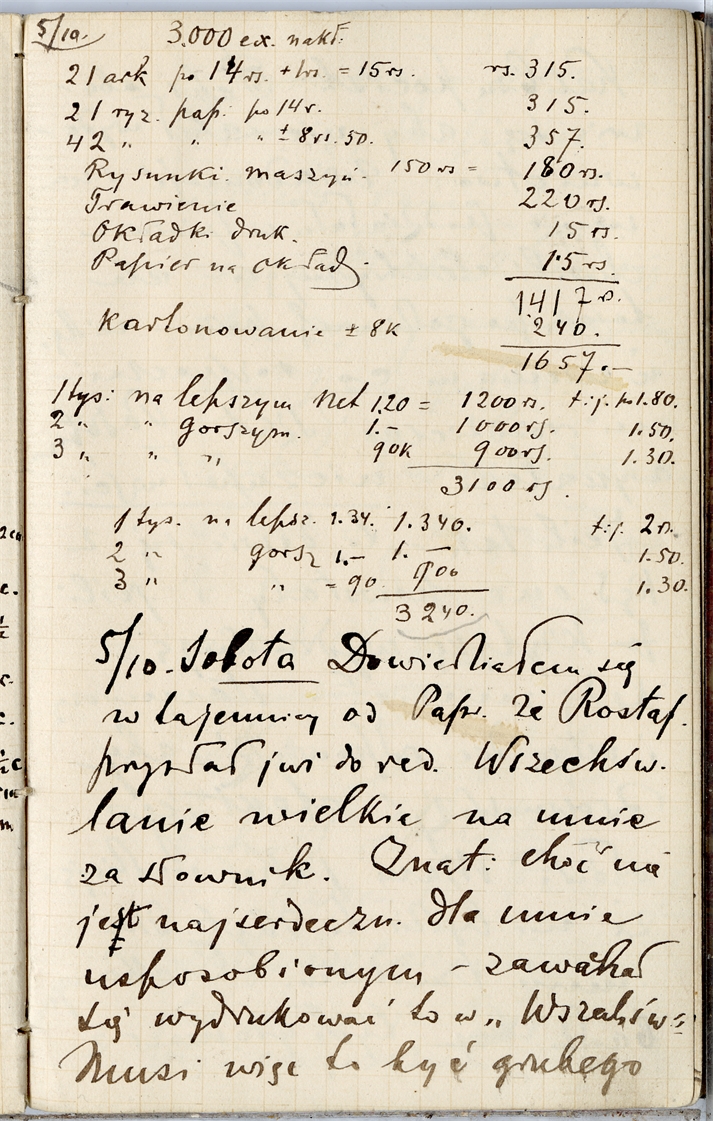 5/10. 3.000 ex. nakł.
21 ark po 14 rs. + 1 rs. = 15 rs. rs. 315.
21 ryz. pap. po 14 r. 315.
42 " " " ± 8 rs. 50. 357.
Rysunki. maszyn. 150 rs = 180 rs.
Trawienie 220 rs.
Okładki druk. 15 rs.
Papier na okład. 15 rs.
1417 rs.
Kartonowanie ± 8k 240.
1657.—
1 tys: na lepszym net 1.20 = 1200 rs. t.j. po 1.80.
2 " " gorszym. 1.— 1000 rs. 1.50.
3 " " " 90k 900 rs. 1.30.
3100 rs.
1 tys. na lepsz. 1.34. 1.340. t.j. 2 rs.
2 " gorsz 1.— 1.— 1.50.
3 " " = 90. 900 1.30.
3240.
5/10. Sobota Dowiedziałem się
w tajemnicy od Pap. że Rostaf.
przysłał już do red. Wszechśw.
łanie wielkie na mnie
za słownik. Znat: choć na
jest najserdeczn. dla mnie
usposobionym – zawahał
się wydrukować to w „Wszechśw="
Musi więc to być grubego